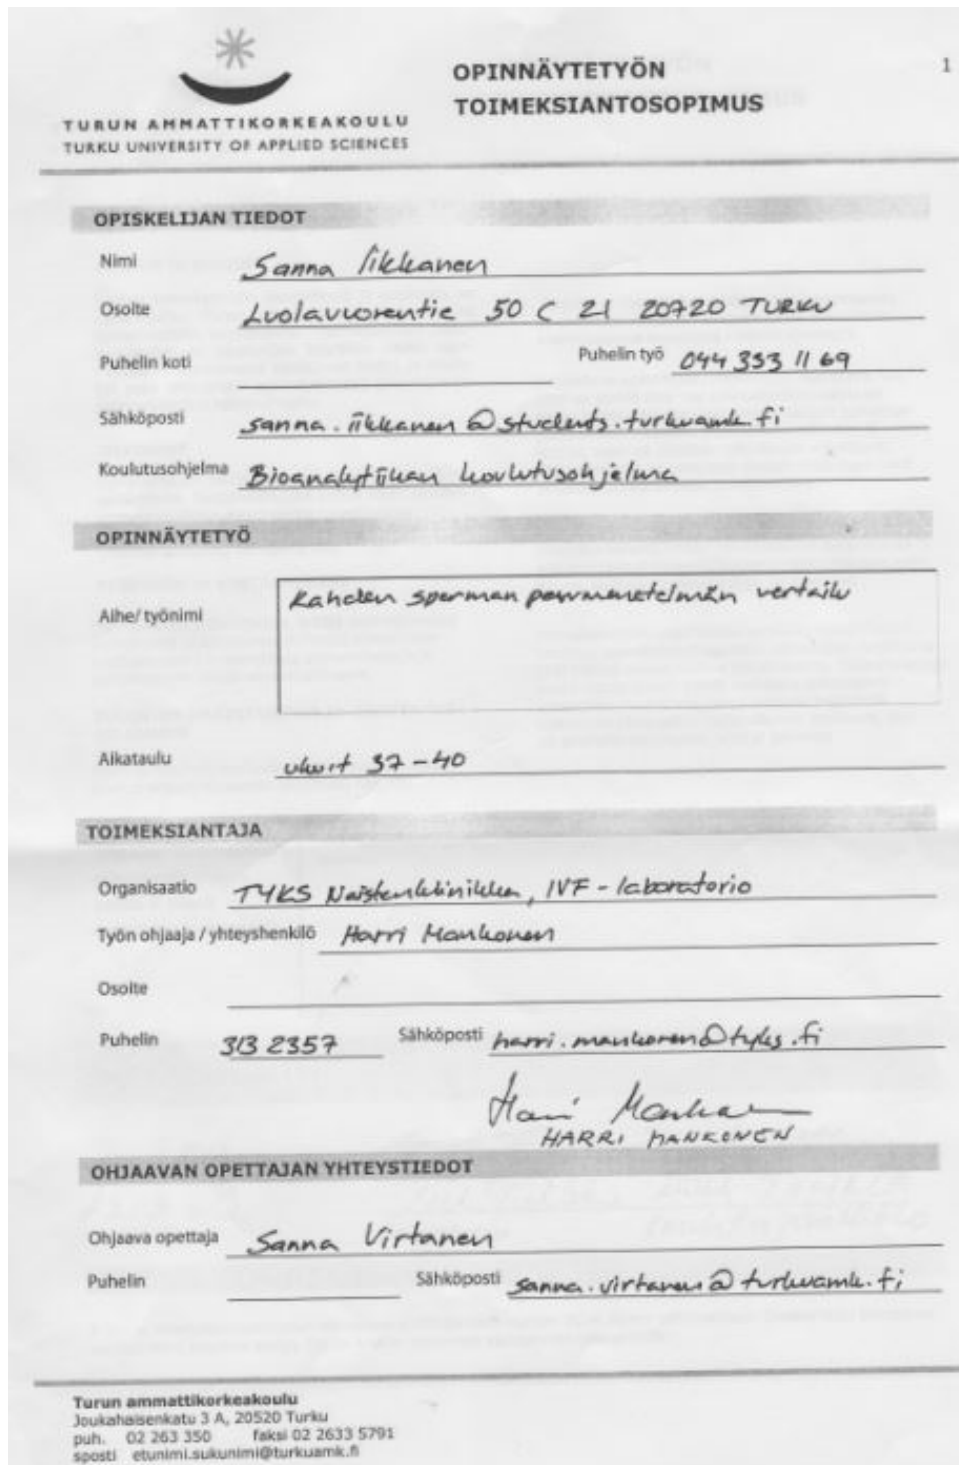 TURUN AMMATTIKORKEAKOULU
TURKU UNIVERSITY OF APPLIED SCIENCES
OPINNÄYTETYÖN
TOIMEKSIANTOSOPIMUS
1
OPISKELIJAN TIEDOT
Nimi Sanna Iikkanen
Osoite Luolavuorentie 50 C 21 20720 TURKU
Puhelin koti Puhelin työ 044 333 11 69
Sähköposti sanna.iikkanen@students.turkuamk.fi
Koulutusohjelma Bioanalytiikan koulutusohjelma
OPINNÄYTETYÖ
Aihe/ työnimi Kahden sperman pesumenetelmän vertailu
Aikataulu viikot 37-40
TOIMEKSIANTAJA
Organisaatio TYKS Naistenklinikka, IVF-laboratorio
Työn ohjaaja / yhteyshenkilö Harri Mankonen
Osoite
Puhelin 313 2357 Sähköposti harri.mankonen@tyks.fi
HARRI MANKONEN
OHJAAVAN OPETTAJAN YHTEYSTIEDOT
Ohjaava opettaja Sanna Virtanen
Puhelin Sähköposti sanna.virtanen@turkuamk.fi
Turun ammattikorkeakoulu
Joukahaisenkatu 3 A, 20520 Turku
puh. 02 263 350 faksi 02 2633 5791
sposti etunimi.sukunimi@turkuamk.fi